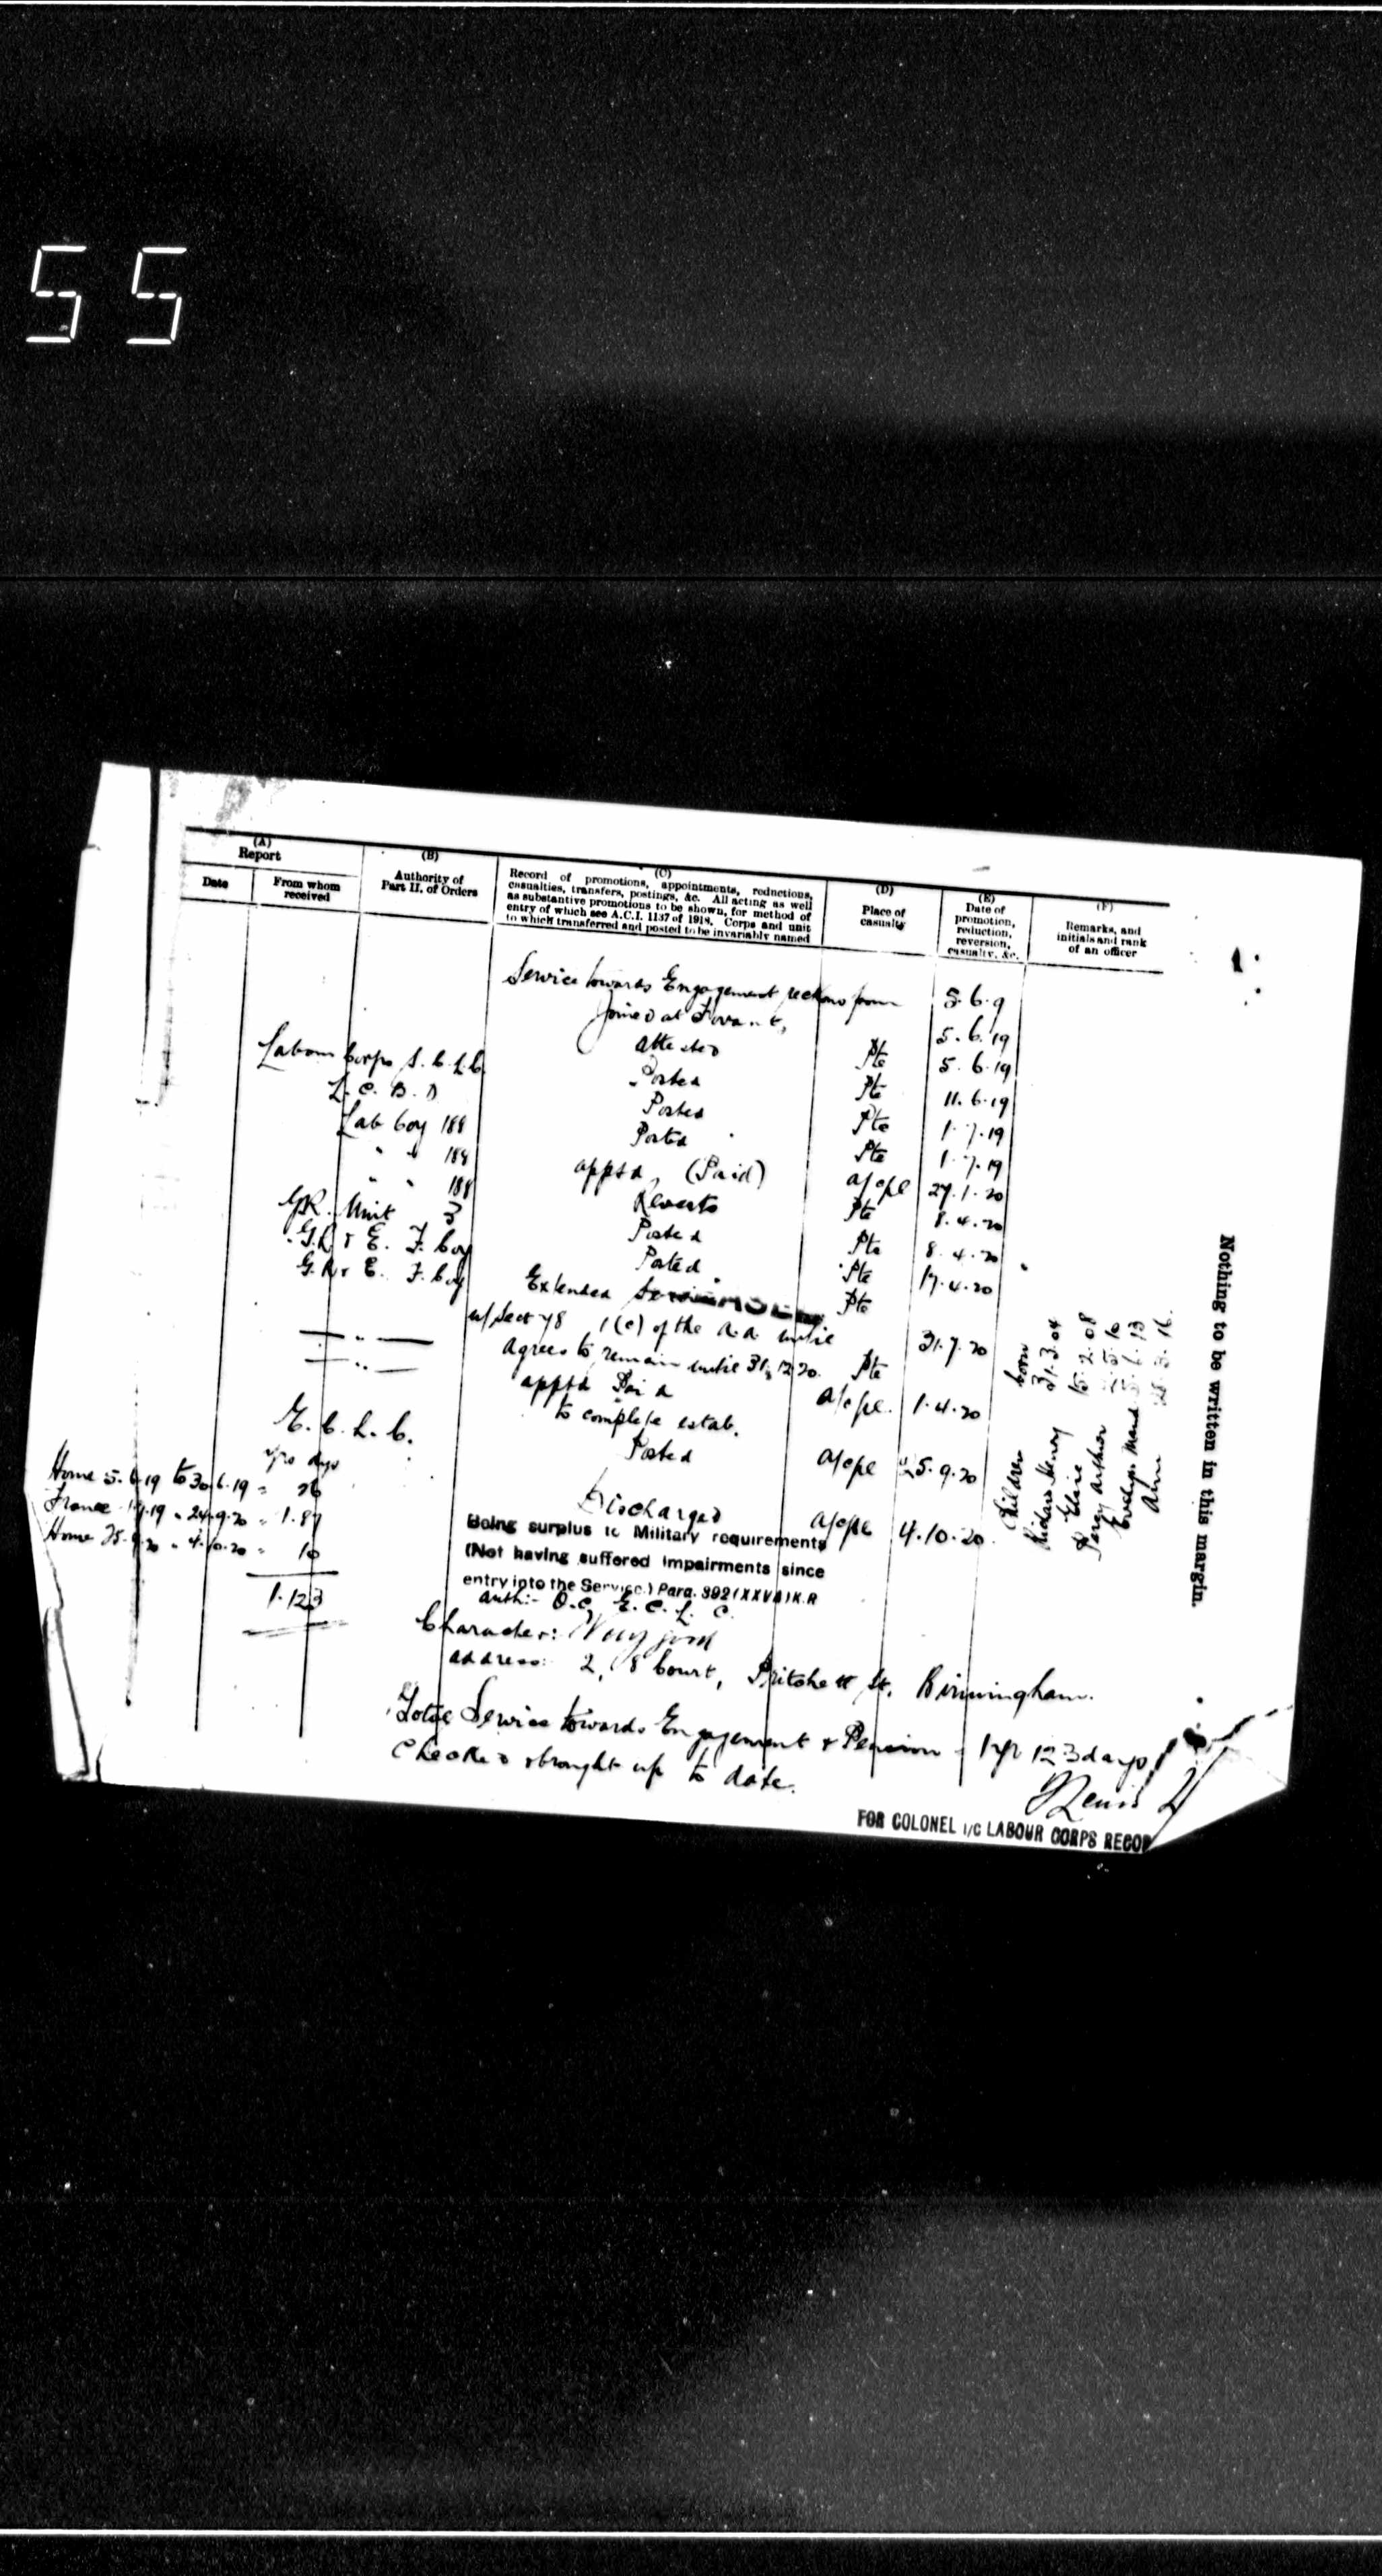 55
(A)
Report
Date
From whom
received
(B)
Authority of
Part II. of Orders
(C)
Record of promotions, appointments, reductions,
casualties, transfers, postings, &c. All acting as well
as substantive promotions to be shown, for method of
entry of which see A.C.I. 1137 of 1918. Corps and unit
to which transferred and posted to be invariably named
(D)
Place of
casualty
(E)
Date of
promotion,
reduction,
reversion,
casualty, &c.
(F)
Remarks, and
initials and rank
of an officer
Service towards Engagement reckons from 5.6.9
Joined at Fovant, 5.6.19
attested Pte 5.6.19
Labour Corps S.C.L.C. Posted Pte 11.6.19
L.C.B.D Posted Pte 1.7.19
Lab Coy 188 Posted Pte 1.7.19
" " 188 apptd, (Paid) a/cpl 27.1.20
" " 188 Reverts Pte 8.4.20
G.R. Unit 3 Posted Pte 8.4.20
G.R & E. F. Coy Posted Pte 17.4.20
G.R & E. F. Coy Extended Pte
u/Sect 78 1(c) of the A.A. until 31.7.20
— " — agrees to remain until 31.12.20. Pte
— " — apptd Paid a/cpl. 1.4.20
to complete estab.
E.C.L.C. Posted a/cpl 25.9.20
yrs days
Home 5.6.19 to 30.6.19 = 26
France 1.7.19 " 24.9.20 = 1.87
Home 25.9.20 " 4.10.20 = 10
1.123
Discharged a/cpl 4.10.20.
Being surplus to Military requirements
(Not having suffered impairments since
entry into the Service.) Para. 392 (XXVA) K.R
auth:- O.C. E.C.L.C.
Character: Very good
address: 2, 8 Court, Pritchett St. Birmingham.
Total Service towards Engagement & Pension = 1 yr 123 days
Checked & brought up to date.
FOR COLONEL I/C LABOUR CORPS RECOR
Children born
Richard Henry 31.3.04
Elsie 15.2.08
Percy Arthur
Evelyn Maud
Nothing to be written in this margin.